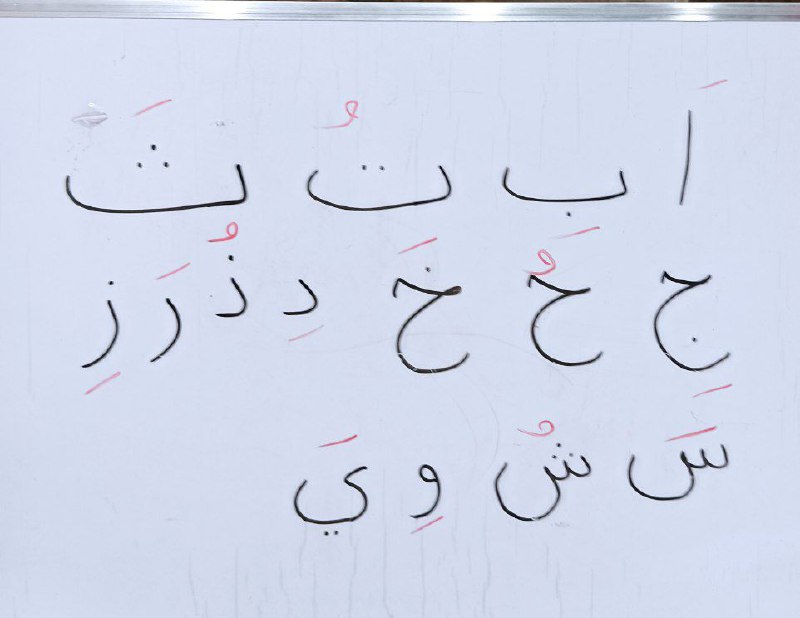 اَ بِ تُ ثَ
جِ حُ خَ دِ ذُ رَ زِ
سَ شُ وِ يَ